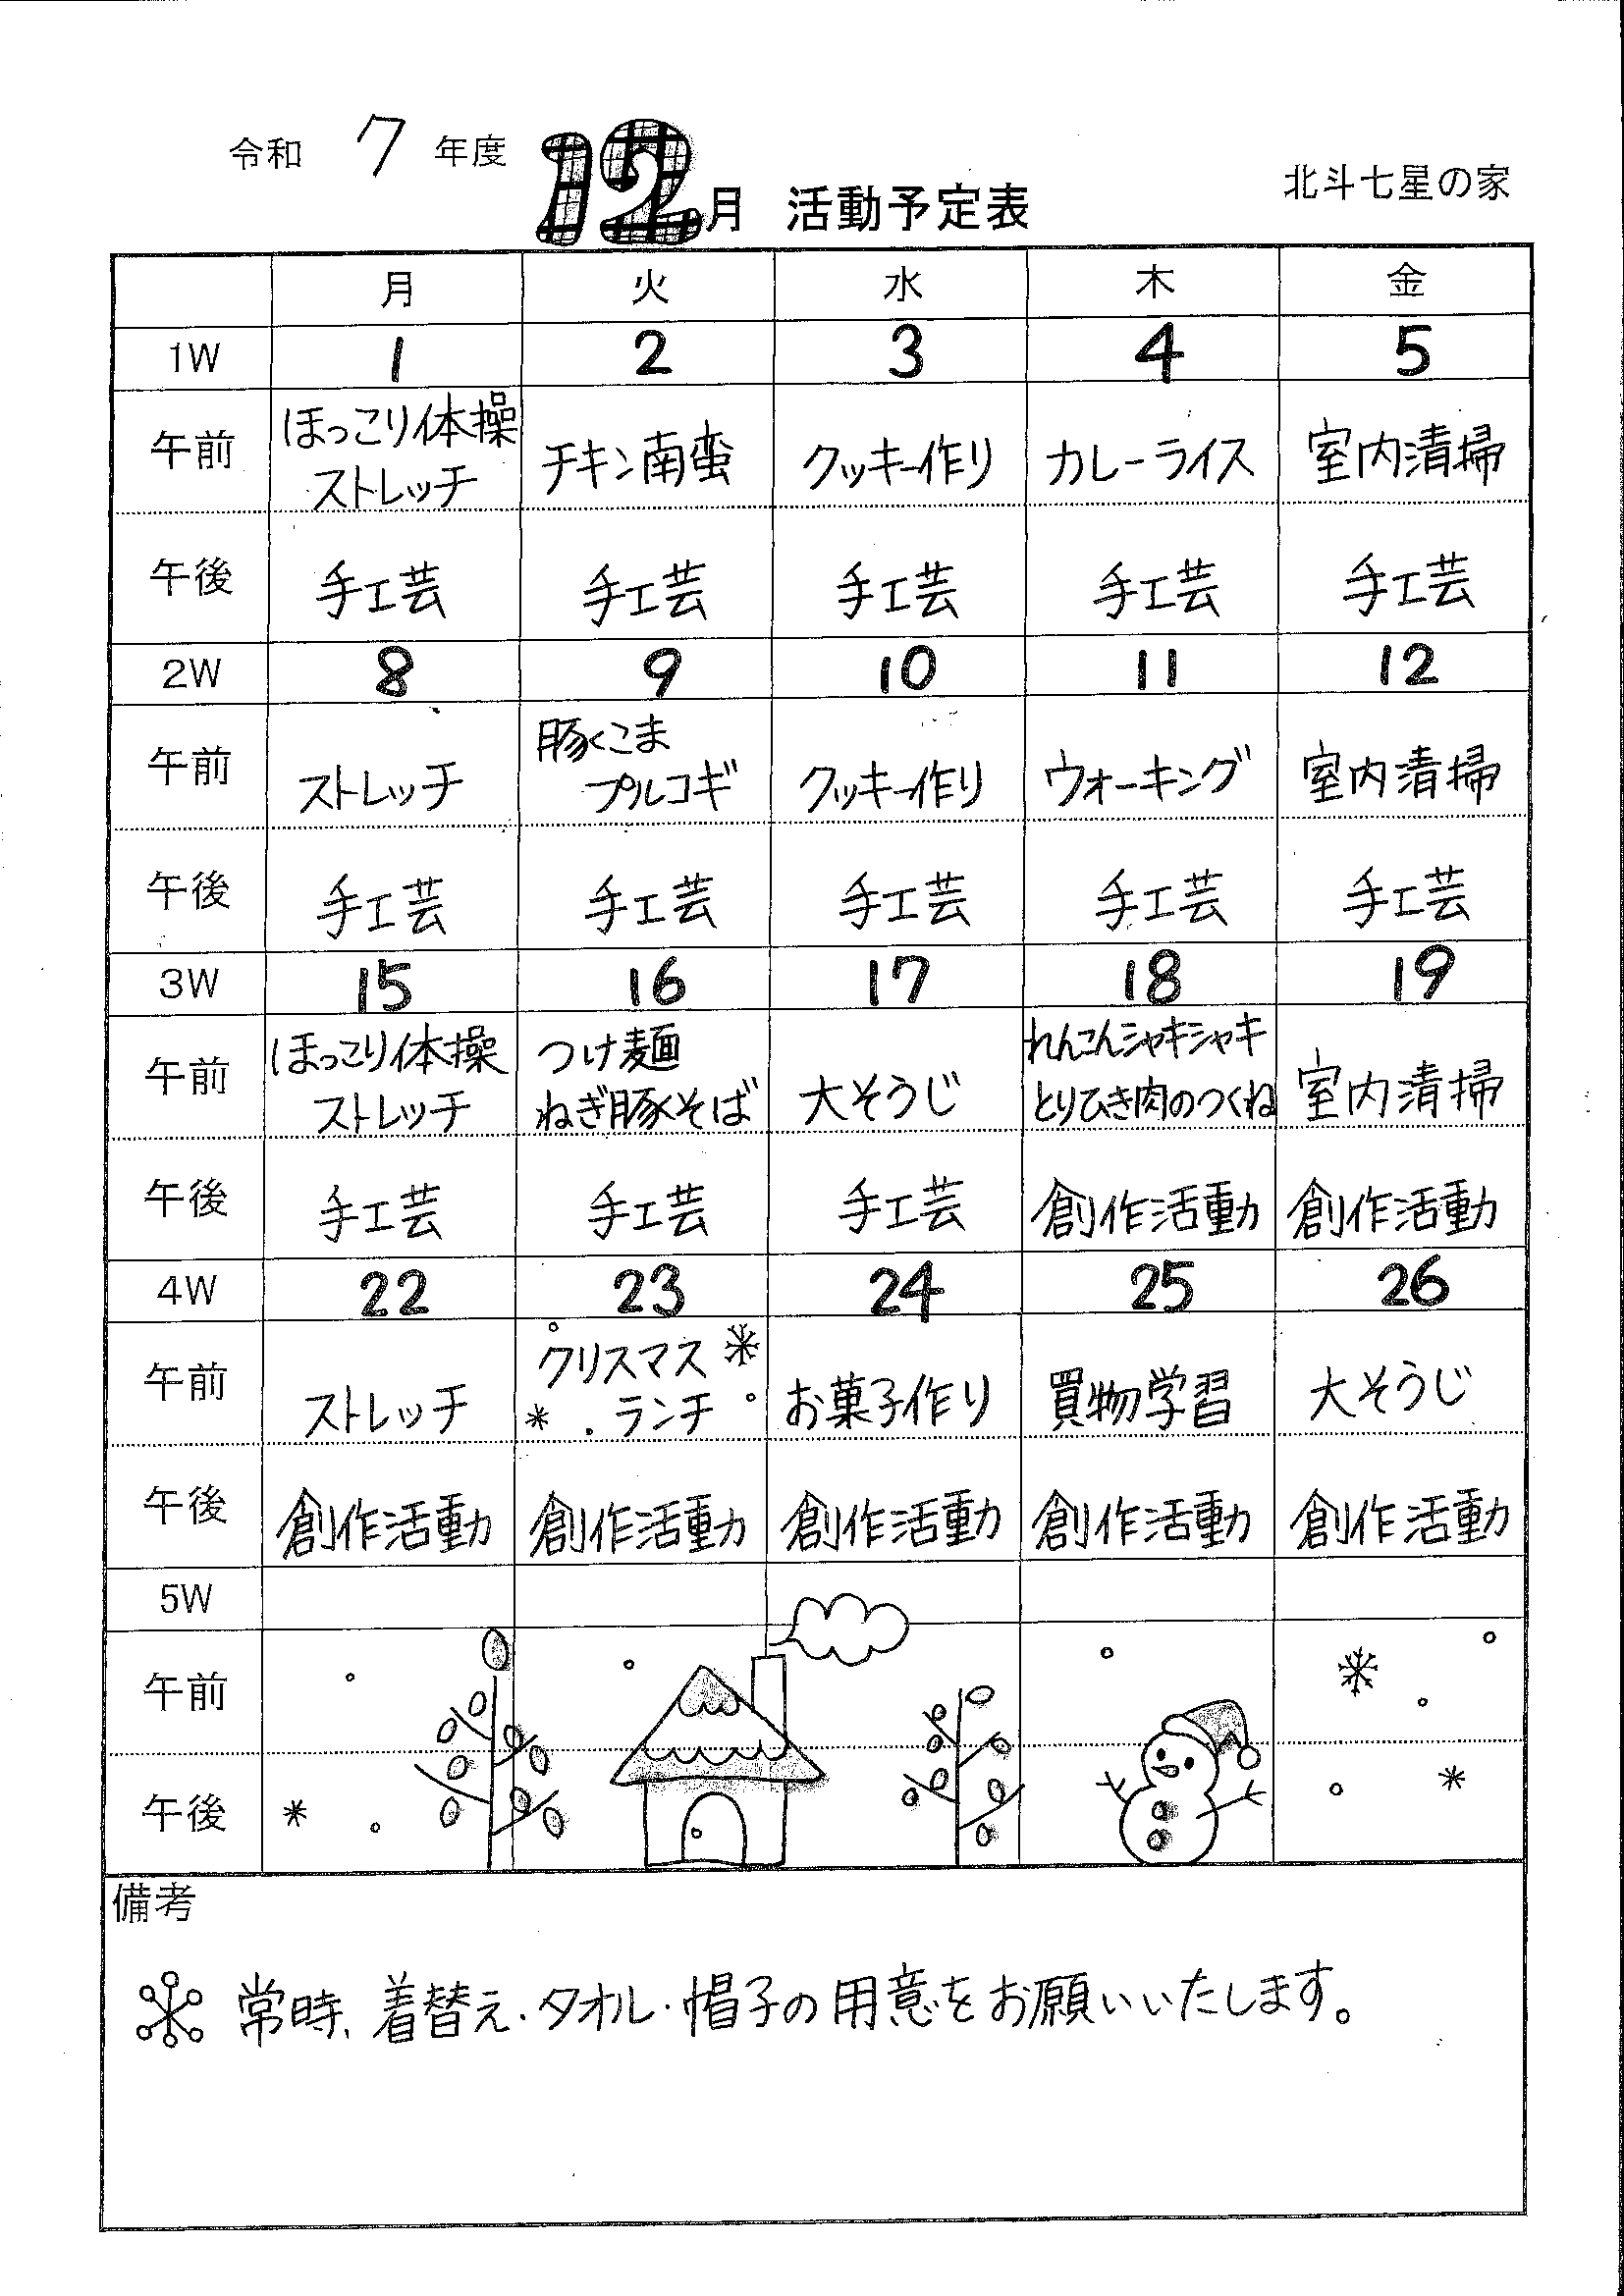 令和 7 年度 12月 活動予定表 北斗七星の家
月 火 水 木 金
1W 1 2 3 4 5
午前 ほっこり体操 ストレッチ チキン南蛮 クッキー作り カレーライス 室内清掃
午後 手工芸 手工芸 手工芸 手工芸 手工芸
2W 8 9 10 11 12
午前 ストレッチ 豚くこま プルコギ クッキー作り ウォーキング 室内清掃
午後 手工芸 手工芸 手工芸 手工芸 手工芸
3W 15 16 17 18 19
午前 ほっこり体操 ストレッチ つけ麺 ねぎ豚くそば 大そうじ れんこんシャキシャキ とりひき肉のつくね 室内清掃
午後 手工芸 手工芸 手工芸 創作活動 創作活動
4W 22 23 24 25 26
午前 ストレッチ クリスマス ランチ お菓子作り 買物学習 大そうじ
午後 創作活動 創作活動 創作活動 創作活動 創作活動
5W
午前
午後
備考
常時、着替え・タオル・帽子の用意をお願いいたします。